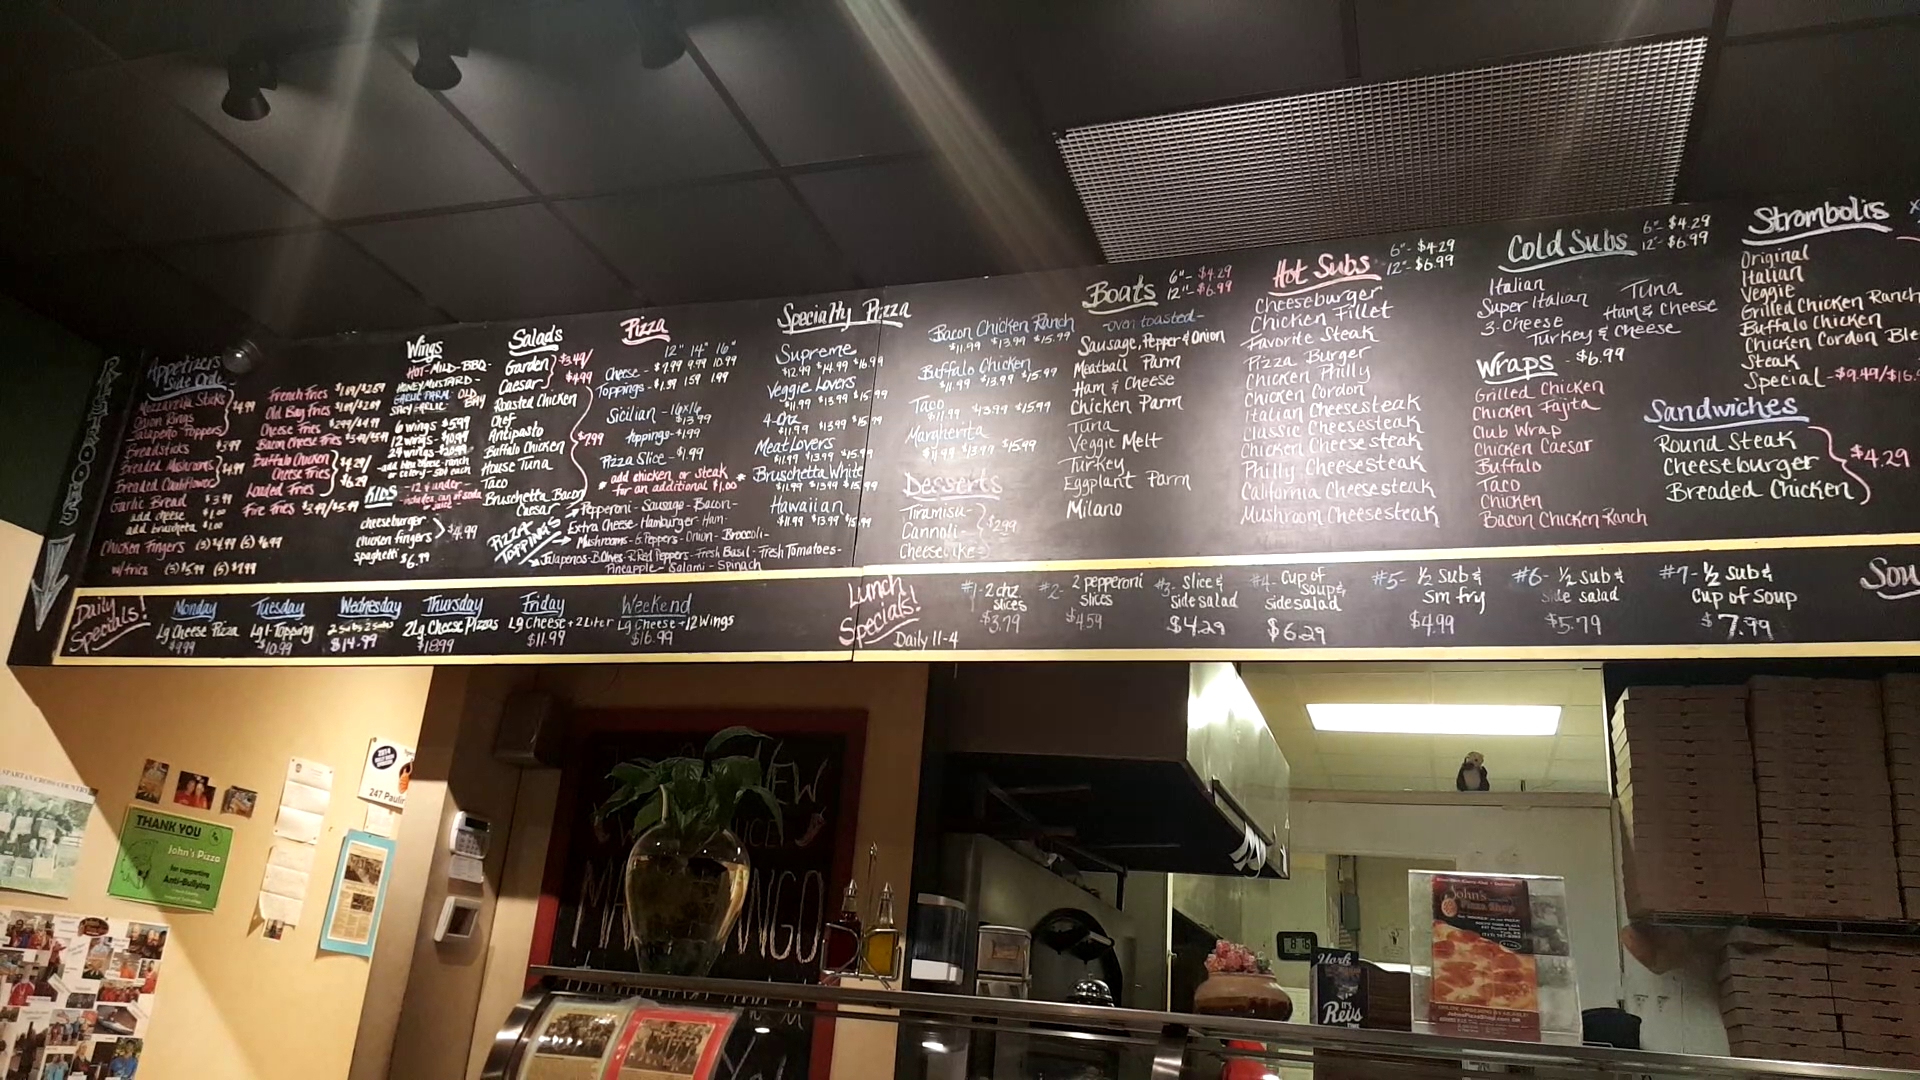 RESTROOMS
Appetizers
Side Order
Mozzarella Sticks
Onion Rings
Jalapeño Poppers
$4.99
Breadsticks $3.99
Breaded Mushrooms
Breaded Cauliflower
$4.99
Garlic Bread $3.99
add cheese $1.00
add bruscheta $1.00
Chicken Fingers (3) $4.99 (5) $6.99
w/fries (3) $5.99 (5) $7.99
French Fries
Old Bay Fries
Cheese Fries $2.99/$4.99
Bacon Cheese Fries
Buffalo Chicken
Cheese Fries
Loaded Fries
$4.29/
$6.29
Fire Fries $3.49/$5.49
Wings
HOT-MILD-BBQ-
HONEY MUSTARD-
GARLIC PARM OLD
SPICY GARLIC BAY
6 wings $5.99
12 wings - $10.99
24 wings -
-add bleu cheese-ranch
or celery - 50¢ each
KIDS -12 & under-
-includes can of soda
or juice-
cheeseburger
chicken fingers
$4.99
spaghetti $6.99
Salads
Garden
Caesar
$3.49/
$4.99
Roasted Chicken
Chef
Antipasto
Buffalo Chicken
House Tuna
Taco
Bruschetta Bacon
Caesar
$7.99
Pizza
12" 14" 16"
Cheese - $7.99 9.99 10.99
Toppings - $1.39 1.59 1.99
Sicilian - 16x16
$13.99
Toppings - $1.99
Pizza Slice - $1.99
* add chicken or steak *
for an additional $1.00
PIZZA TOPPINGS
Pepperoni - Sausage - Bacon -
Extra Cheese - Hamburger - Ham -
Mushrooms - G. Peppers - Onion - Broccoli -
Jalapenos - B. Olives - R. Red Peppers - Fresh Basil - Fresh Tomatoes -
Pineapple - Salami - Spinach
Specialty Pizza
Supreme
$12.99 $14.99 $16.99
Veggie Lovers
$11.99 $13.99 $15.99
4-Chz
$11.99 $13.99 $15.99
Meat Lovers
$11.99 $13.99 $15.99
Bruschetta White
$11.99 $13.99 $15.99
Hawaiian
$11.99 $13.99 $15.99
Bacon Chicken Ranch
$11.99 $13.99 $15.99
Buffalo Chicken
$11.99 $13.99 $15.99
Taco
$11.99 $13.99 $15.99
Margherita
$11.99 $13.99 $15.99
Desserts
Tiramisu -
Cannoli -
Cheesecake -
$2.99
Boats
6" - $4.29
12" - $6.99
-oven toasted-
Sausage, Pepper & Onion
Meatball Parm
Ham & Cheese
Chicken Parm
Tuna
Veggie Melt
Turkey
Eggplant Parm
Milano
Hot Subs
6" - $4.29
12" - $6.99
Cheeseburger
Chicken Fillet
Favorite Steak
Pizza Burger
Chicken Philly
Chicken Cordon
Italian Cheesesteak
Classic Cheesesteak
Chicken Cheesesteak
Philly Cheesesteak
California Cheesesteak
Mushroom Cheesesteak
Cold Subs
6" - $4.29
12" - $6.99
Italian
Super Italian
3-Cheese
Tuna
Ham & Cheese
Turkey & Cheese
Wraps - $6.99
Grilled Chicken
Chicken Fajita
Club Wrap
Chicken Caesar
Buffalo
Taco
Chicken
Bacon Chicken Ranch
Strombolis
Original
Italian
Veggie
Grilled Chicken Ranch
Buffalo Chicken
Chicken Cordon Ble
Steak
Special - $9.49/$16.
Sandwiches
Round Steak
Cheeseburger
Breaded Chicken
$4.29
Daily Specials!
Monday
Lg Cheese Pizza
$9.99
Tuesday
Lg 1-Topping
$10.99
Wednesday
2 Subs 2 Sodas
$14.99
Thursday
2 Lg Cheese Pizzas
$18.99
Friday
Lg Cheese + 2 Liter
$11.99
Weekend
Lg Cheese + 12 Wings
$16.99
Lunch Specials!
Daily 11-4
#1 - 2 chz
slices
$3.79
#2 - 2 pepperoni
slices
$4.59
#3 - Slice &
side salad
$4.29
#4 - Cup of
soup &
side salad
$6.29
#5 - ½ Sub &
Sm fry
$4.99
#6 - ½ Sub &
side salad
$5.79
#7 - ½ Sub &
Cup of Soup
$7.99
Sou
SPARTAN CROSS COUNTRY
THANK YOU
John's Pizza
for supporting
Anti-Bullying
2014
247 Paulin
NEW
MANGO
8:16
York
IT'S
Revs
TIME
John's
Pizza Shop